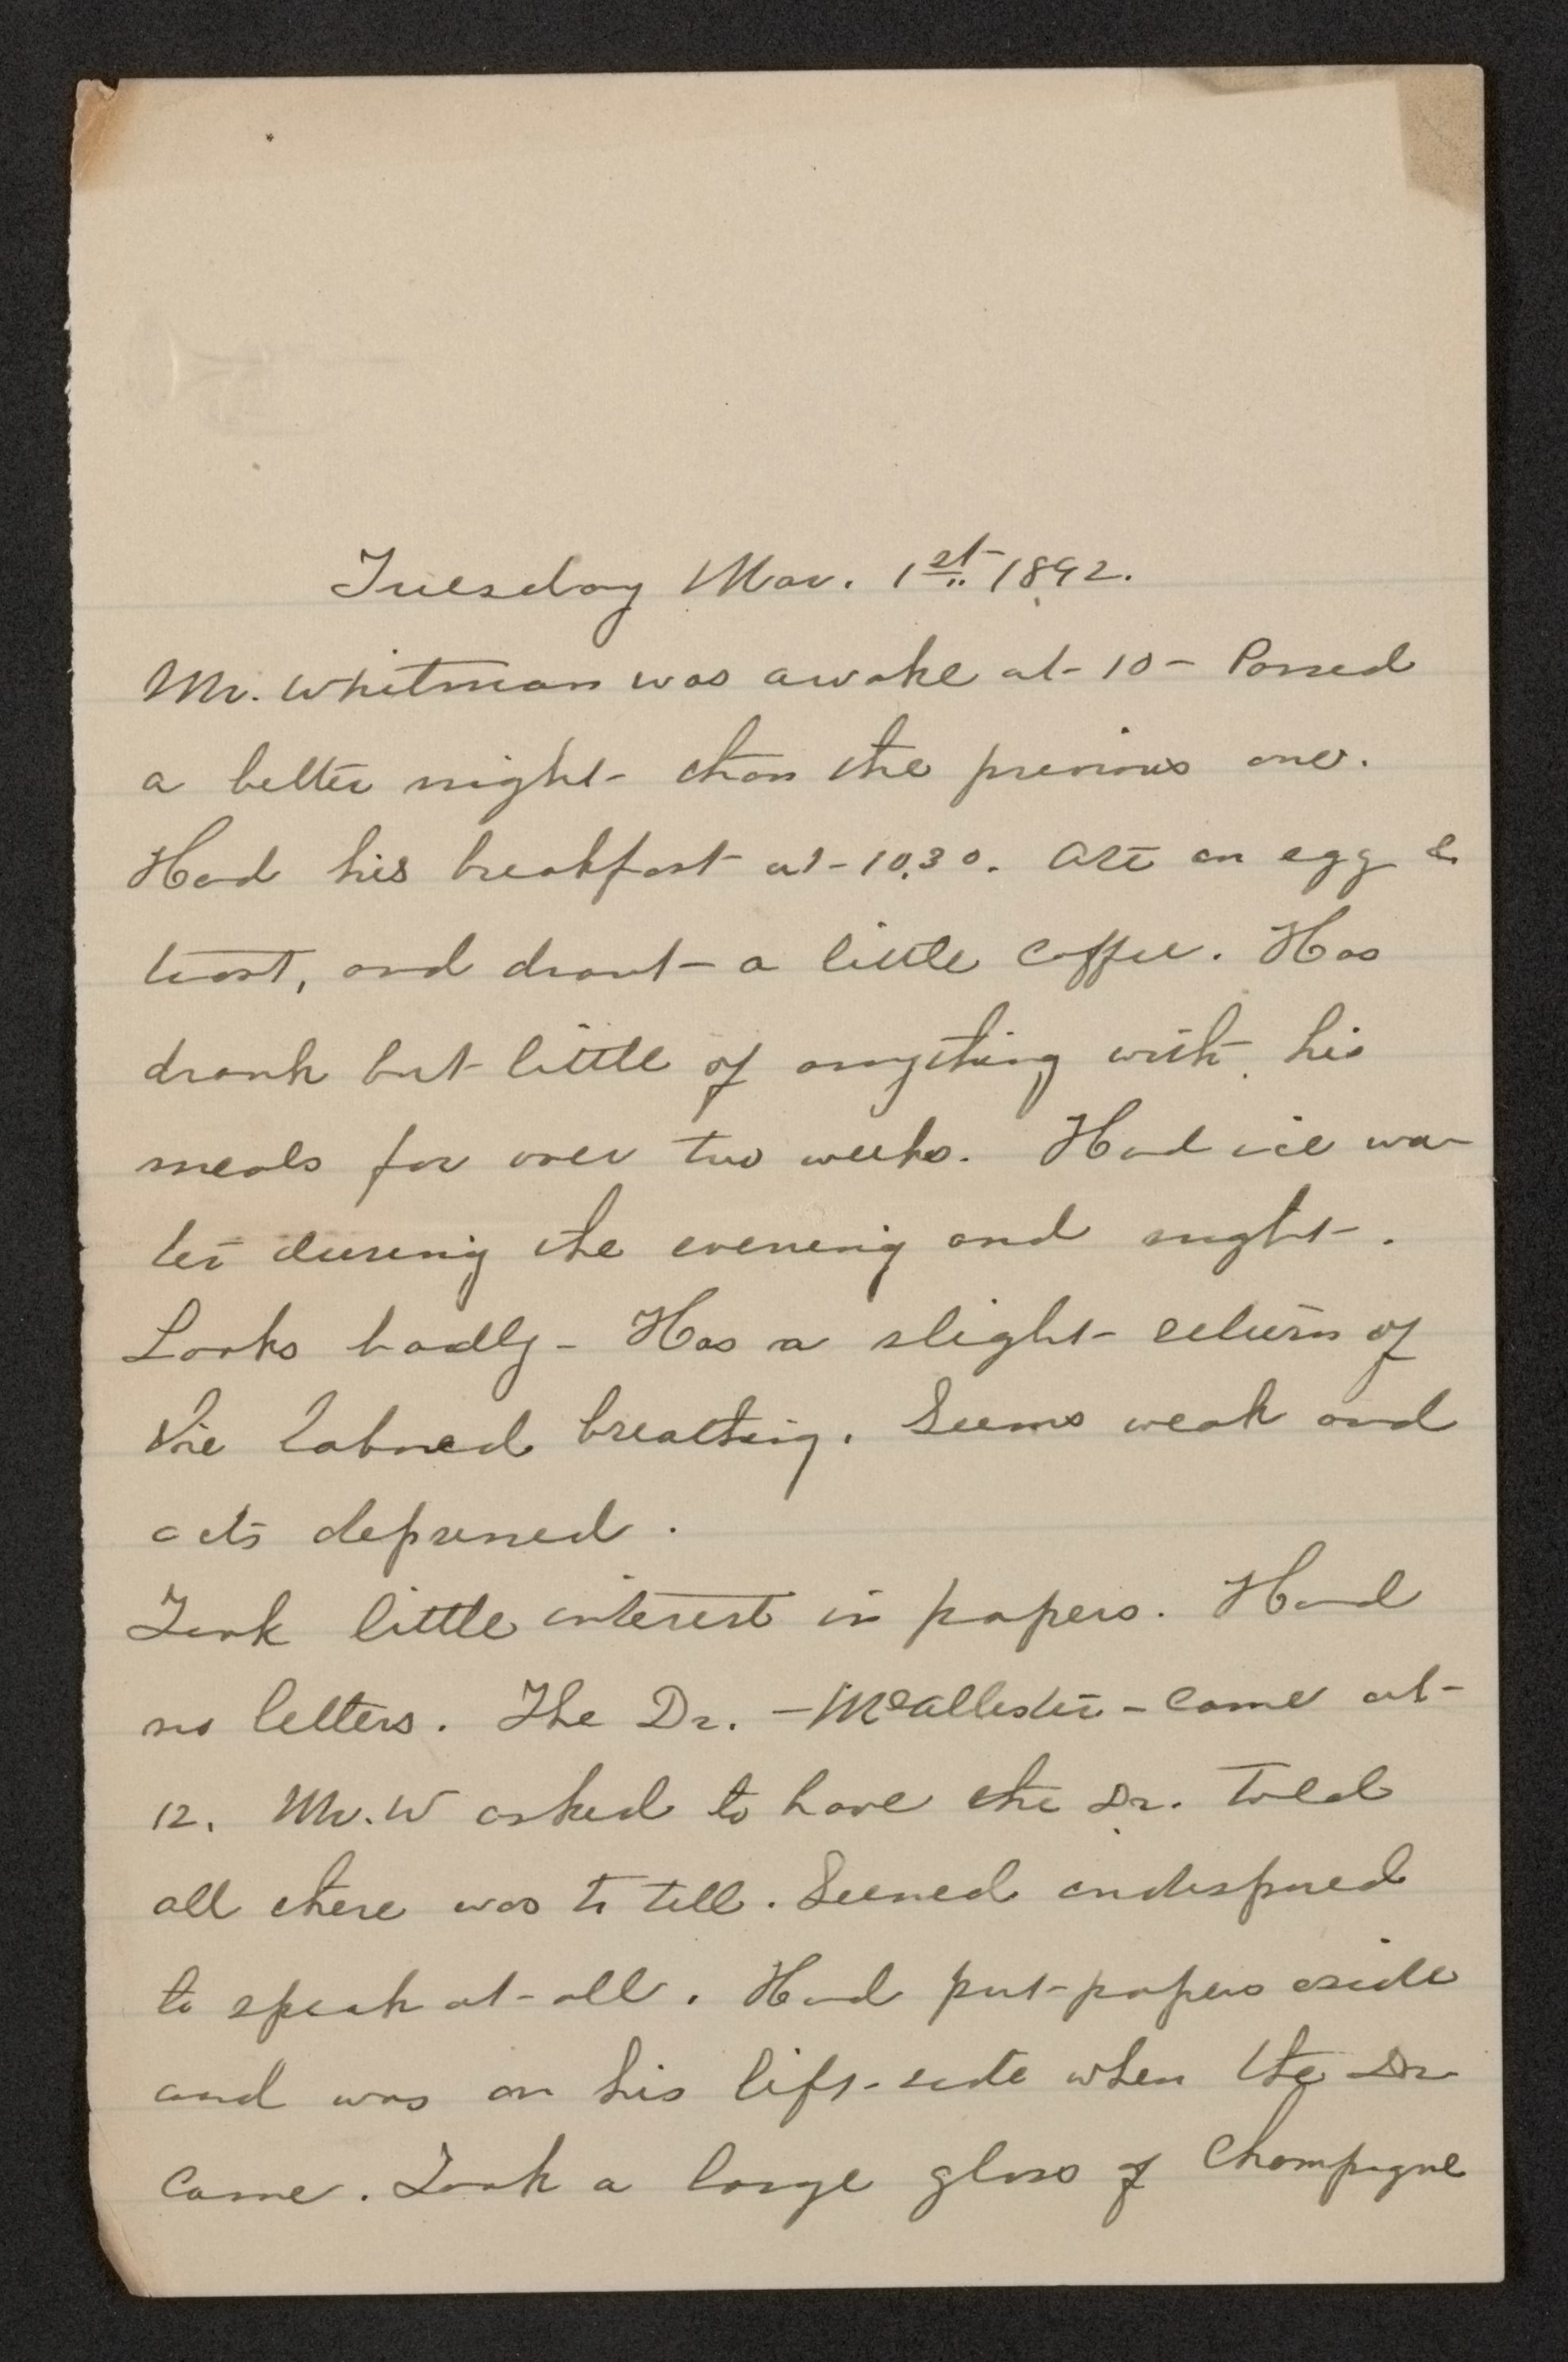 Tuesday Mar. 1st 1892.
Mr. Whitman was awake at 10 - Passed
a better night than the previous one.
Had his breakfast at 10.30. Ate an egg &
toast, and drank a little coffee. Has
drank but little of anything with his
meals for over two weeks. Had ice wa-
ter during the evening and night.
Looks badly - Has a slight return of
the labored breathing. Seems weak and
acts depressed.
Took little interest in papers. Had
no letters. The Dr. - McAllister - came at
12. Mr. W asked to have the Dr. told
all there was to tell. Seemed indisposed
to speak at all. Had put papers aside
and was on his left side when the Dr
came. Took a large glass of Champagne